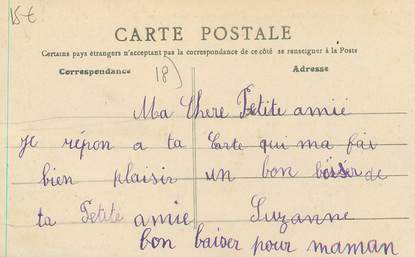 15 €
CARTE POSTALE
Certains pays étrangers n'acceptant pas la correspondance de ce côté se renseigner à la Poste
Correspondance
18)
Adresse
Ma Chere Petite amié
je répon a ta Carte qui ma fai
bien plaisir un bon baiser de
ta Petité amie Suzanne
bon baiser pour maman